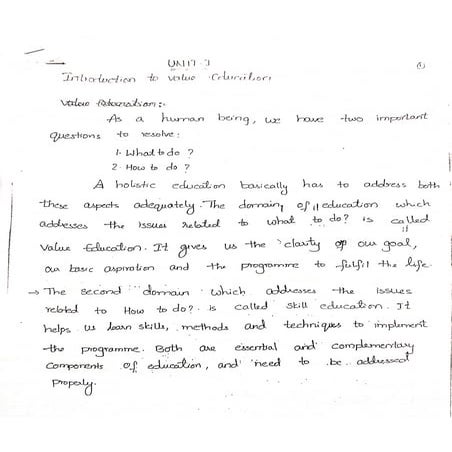 UNIT-I
Introduction to Value Education
Value Education:-
As a human being, we have two important
questions to resolve:
1. What to do ?
2. How to do ?
A holistic education basically has to address both
these aspects adequately. The domain of education which
addresses the issues related to what to do? is called
Value Education. It gives us the clarity of our goal,
our basic aspiration and the programme to fulfil the life.
→ The second domain which addresses the issues
related to How to do? is called skill education. It
helps us learn skills, methods and techniques to implement
the programme. Both are essential and complementary
components of education, and need to be addressed
properly.